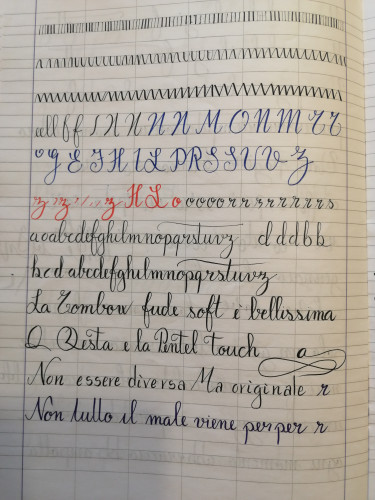 ellff S H H N N M O N M Z Z
og E F H I L P R S S U V Z
z z z z H L o o o o o r r z r r r r r s
a o a b c d e f g h i l m n o p q r s t u v z d d d b b
b c d a b c d e f g h i l m n o p q r s t u v z
La Tombow fude soft è bellissima
Q Qesta e la Pentel Touch a
Non essere diversa Ma originale r
Non tutto il male viene per per r